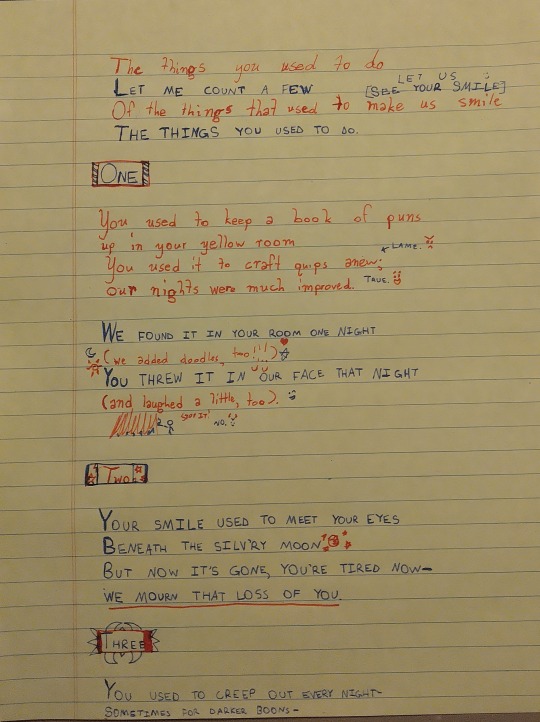 The things you used to do
LET ME COUNT A FEW
LET US
[SEE YOUR SMILE]
Of the things that used to make us smile
THE THINGS YOU USED TO DO.
ONE
You used to keep a book of puns
up in your yellow room
LAME.
You used it to craft quips anew;
our nights were much improved.
TRUE.
WE FOUND IT IN YOUR ROOM ONE NIGHT
(we added doodles, too!!!)
YOU THREW IT IN OUR FACE THAT NIGHT
(and laughed a little, too).
GOT IT!
NO.
TWO
YOUR SMILE USED TO MEET YOUR EYES
BENEATH THE SILV'RY MOON
BUT NOW IT'S GONE, YOU'RE TIRED NOW—
WE MOURN THAT LOSS OF YOU.
THREE
YOU USED TO CREEP OUT EVERY NIGHT—
SOMETIMES FOR DARKER BOONS—